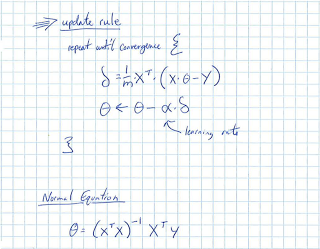 ⇒ update rule
repeat until convergence {
δ = 1/m Xᵀ · (X · θ - Y)
θ ← θ - α · δ
learning rate
}
Normal Equation
θ = (XᵀX)⁻¹ Xᵀy